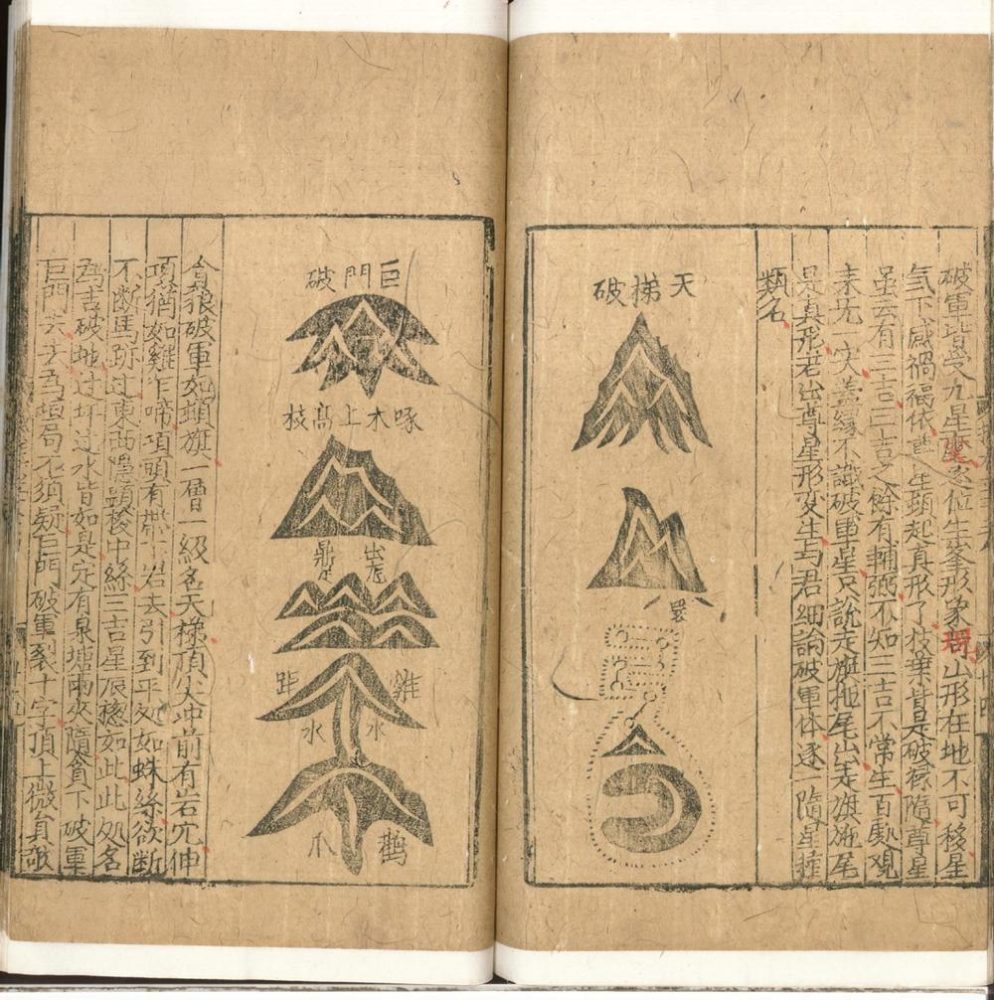 破軍皆受九星變逐位生峯形象現山形在地不可移星
気下感禍福依尊生頭起真形了枝葉皆是破祿隨尊星
虽云有三吉三吉之餘有輔弼不知三吉不常生百處观
来无一实盖縁不識破軍星只說走旗拖尾出走旗拖尾
是真形若出尊星形变生与君細論破軍体逐一隨星種
類名
天梯破
巨門破
啄木上高枝
鼎足
雞距
水
水
鶴爪
貪狼破軍如頓旗一層一級名天梯頂尖冲前有岩穴伸
項猶如雞乍啼項頭有帶下岩去引到平处如蛛絲欲断
不断馬跡过東西隱顕梭中絲三吉星辰禄如此此処名
為吉破地过坪过水皆如是定有泉塘兩夾隨貪下破軍
巨門去去為垣局不須疑巨門破軍裂十字頂上微貟破